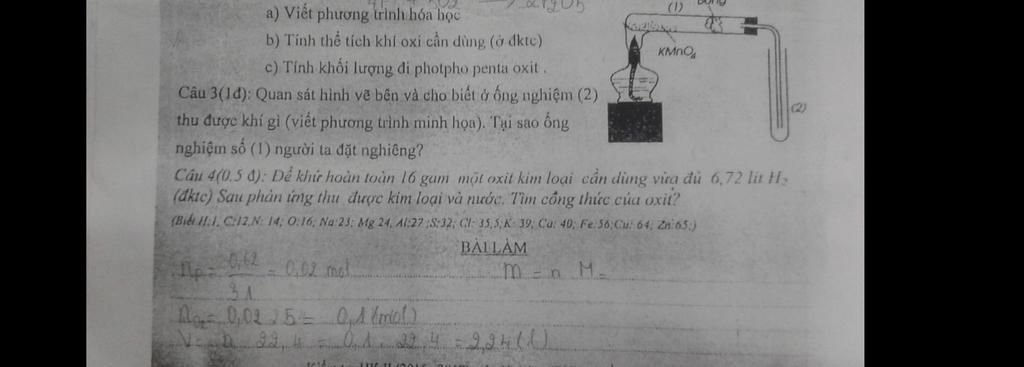 a) Viết phương trình hóa học
b) Tính thể tích khí oxi cần dùng (ở đktc)
c) Tính khối lượng đi photpho penta oxit .
(1)
Bông
KMnO₄
(2)
Câu 3(1đ): Quan sát hình vẽ bên và cho biết ở ống nghiệm (2)
thu được khí gì (viết phương trình minh họa). Tại sao ống
nghiệm số (1) người ta đặt nghiêng?
Câu 4(0.5 đ): Để khử hoàn toàn 16 gam một oxit kim loại cần dùng vừa đủ 6,72 lit H₂
(đktc) Sau phản ứng thu được kim loại và nước. Tìm công thức của oxit?
(Biết H:1, C:12,N: 14; O:16; Na:23; Mg 24, Al:27 ;S:32; Cl: 35,5;K: 39; Ca: 40; Fe:56;Cu: 64; Zn:65;)
BÀI LÀM
nP = 0,62/31 = 0,02 mol m = n M =
nO₂ = 0,02 . 5 = 0,1 (mol)
V = n 22,4 = 0,1 . 22,4 = 2,24 (l)